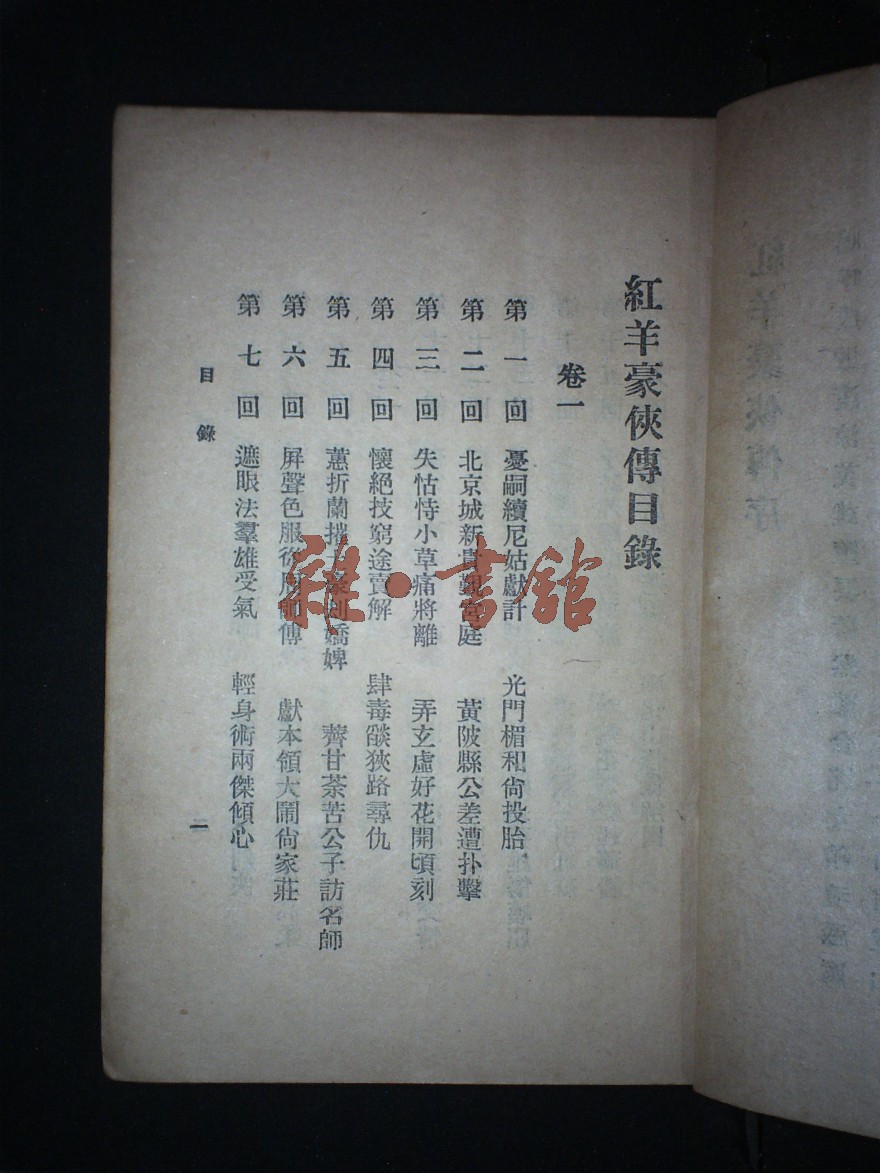 紅羊豪俠傳目錄
卷一
第一回 憂嗣續尼姑獻計 光門楣和尙投胎
第二回 北京城新貴覲宮庭 黃陂縣公差遭扑擊
第三回 失怙恃小草痛將離 弄玄虛好花開頃刻
第四回 懷絕技窮途賣解 肆毒燄狹路尋仇
第五回 蕙折蘭摧 嬌婢 薺甘荼苦公子訪名師
第六回 屏聲色服從 師傅 獻本領大鬧尙家莊
第七回 遮眼法羣雄受氣 輕身術兩傑傾心
目錄
一
雜·書館
紅羊豪俠傳序